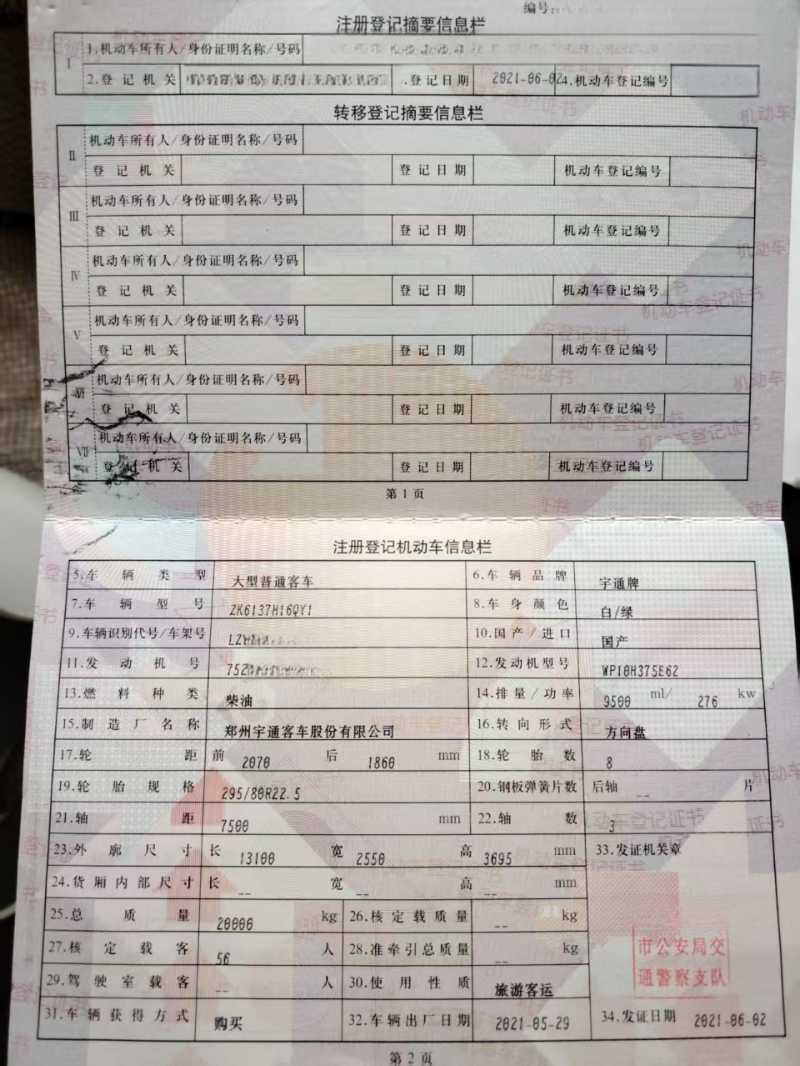 编号:
注册登记摘要信息栏
I 1.机动车所有人/身份证明名称/号码
2.登记机关 3.登记日期 2021-06-02 4.机动车登记编号
转移登记摘要信息栏
II 机动车所有人/身份证明名称/号码
登记机关 登记日期 机动车登记编号
III 机动车所有人/身份证明名称/号码
登记机关 登记日期 机动车登记编号
IV 机动车所有人/身份证明名称/号码
登记机关 登记日期 机动车登记编号
V 机动车所有人/身份证明名称/号码
登记机关 登记日期 机动车登记编号
VI 机动车所有人/身份证明名称/号码
登记机关 登记日期 机动车登记编号
VII 机动车所有人/身份证明名称/号码
登记机关 登记日期 机动车登记编号
第1页
注册登记机动车信息栏
5.车辆类型 大型普通客车 6.车辆品牌 宇通牌
7.车辆型号 ZK6137H16QY1 8.车身颜色 白/绿
9.车辆识别代号/车架号 10.国产/进口 国产
11.发动机号 12.发动机型号 WP10H375E62
13.燃料种类 柴油 14.排量/功率 9500 ml/ 276 kw
15.制造厂名称 郑州宇通客车股份有限公司 16.转向形式 方向盘
17.轮距 前 2070 后 1860 mm 18.轮胎数 8
19.轮胎规格 295/80R22.5 20.钢板弹簧片数 后轴 -- 片
21.轴距 7500 mm 22.轴数 3
23.外廓尺寸 长 13100 宽 2550 高 3695 mm 33.发证机关章
24.货厢内部尺寸 长 -- 宽 -- 高 -- mm
25.总质量 20000 kg 26.核定载质量 -- kg
27.核定载客 56 人 28.准牵引总质量 -- kg
市公安局交
通警察支队
29.驾驶室载客 -- 人 30.使用性质 旅游客运
31.车辆获得方式 购买 32.车辆出厂日期 2021-05-29 34.发证日期 2021-06-02
第2页